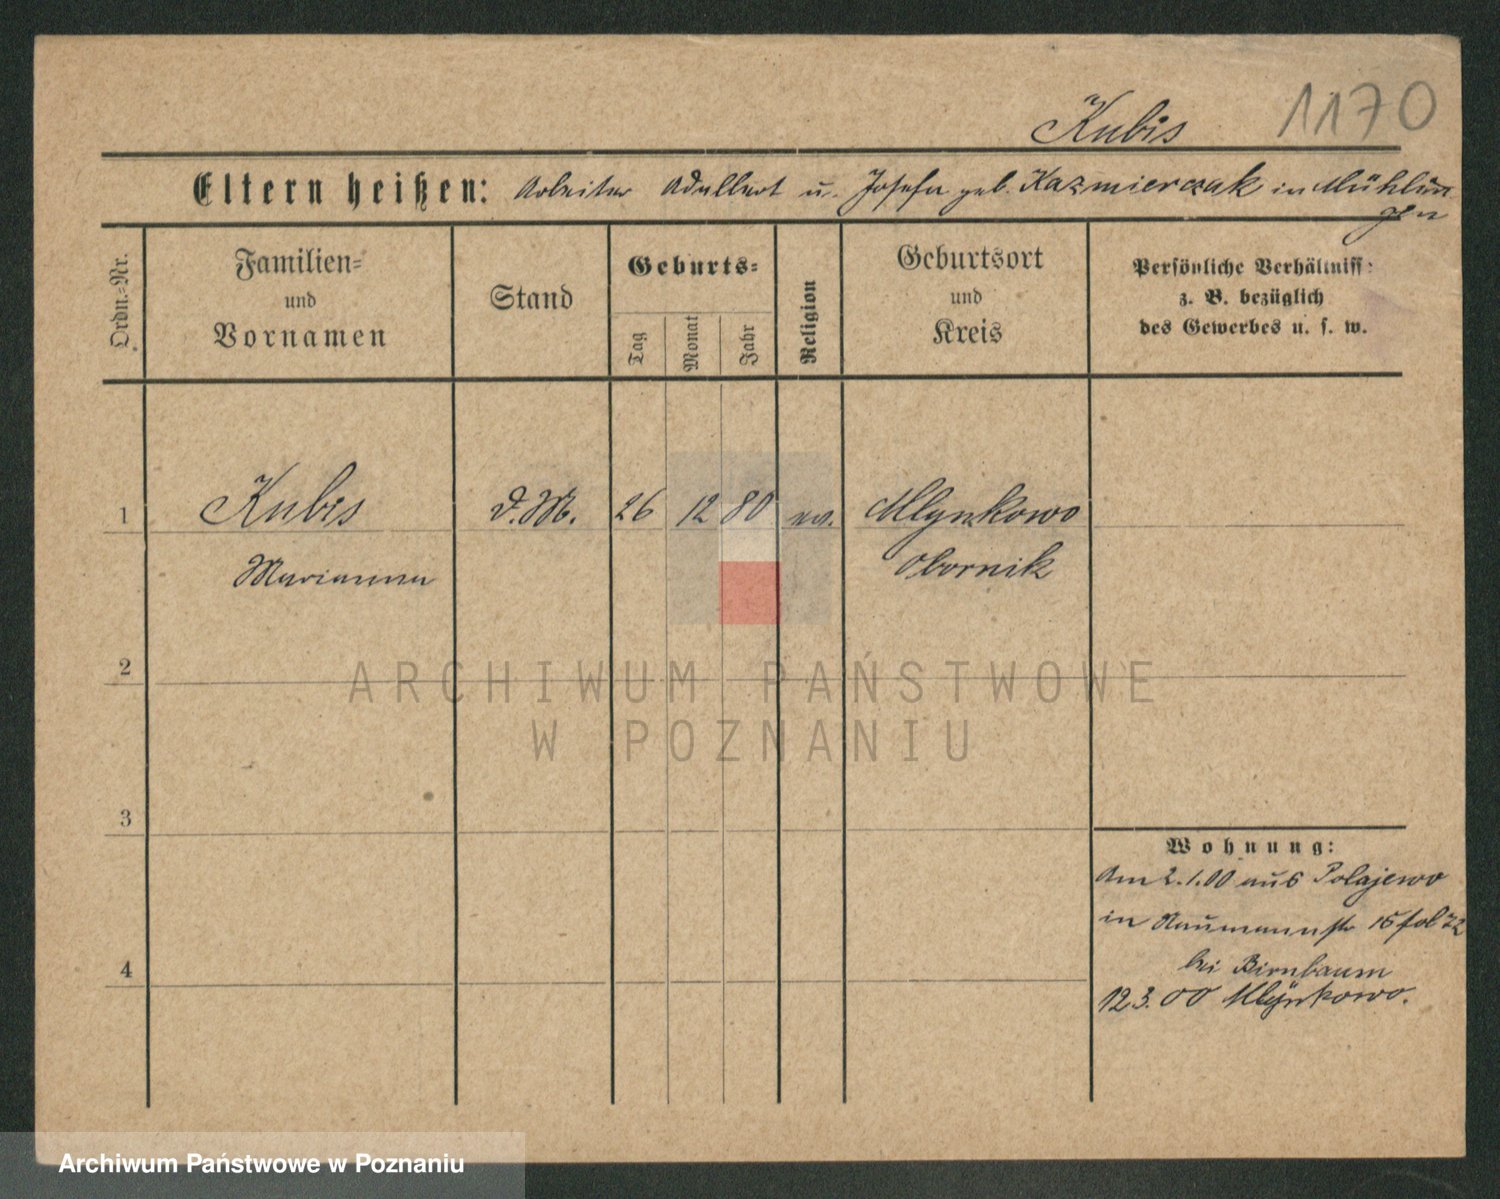 1170
Kubis
Eltern heißen: Arbeiter Adalbert u. Josefa geb. Kazmierczak in
Ordn.-Nr.
Familien-
und
Vornamen
Stand
Geburts-
Tag
Monat
Jahr
Religion
Geburtsort
und
Kreis
Persönliche Verhältniss:
z. B. bezüglich
des Gewerbes u. s. w.
1 Kubis D.M. 26 12 80 Mlynkowo
Marianna Obornik
2
ARCHIWUM PAŃSTWOWE
W POZNANIU
3
4
Wohnung:
Am 2.1.00 aus Polajewo
in Naumannstr 15 fol 72
bei Birnbaum
12.3.00 Mlynkowo.
Archiwum Państwowe w Poznaniu